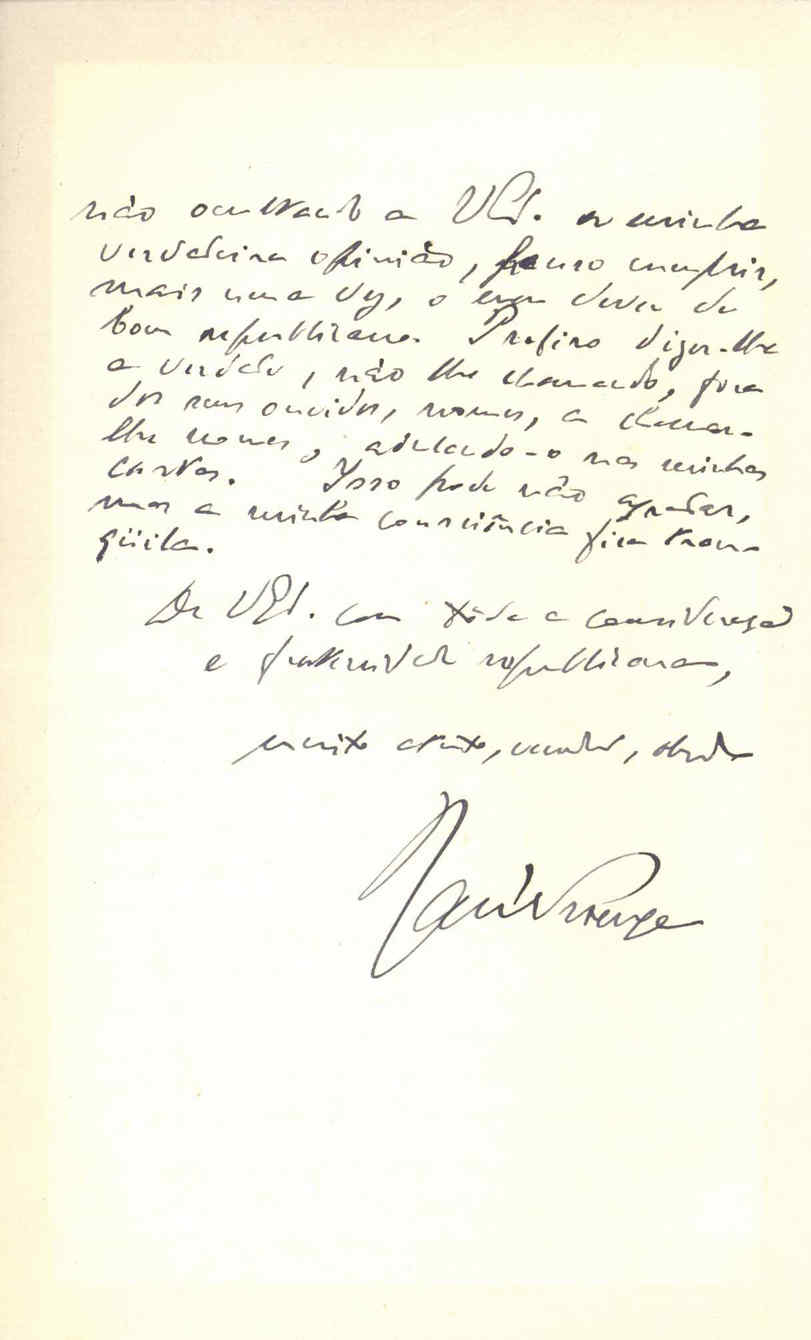 não ocultando a V. Ex. a minha
verdadeira opinião, penso cumprir,
mais uma vez, o meu dever de
bom republicano. Prefiro dizer-lhe
a verdade, não lhe chamando, fora
dos seus ouvidos, nomes, a chamar-
lhe nomes, adulando-o nas minhas
cartas. Isso pode não agradar,
mas a minha consciência fica tran-
qüila.
De V. Ex. com tôda a consideração
e fraternidade republicana,
muito atento, venerador,
Raúl Proença